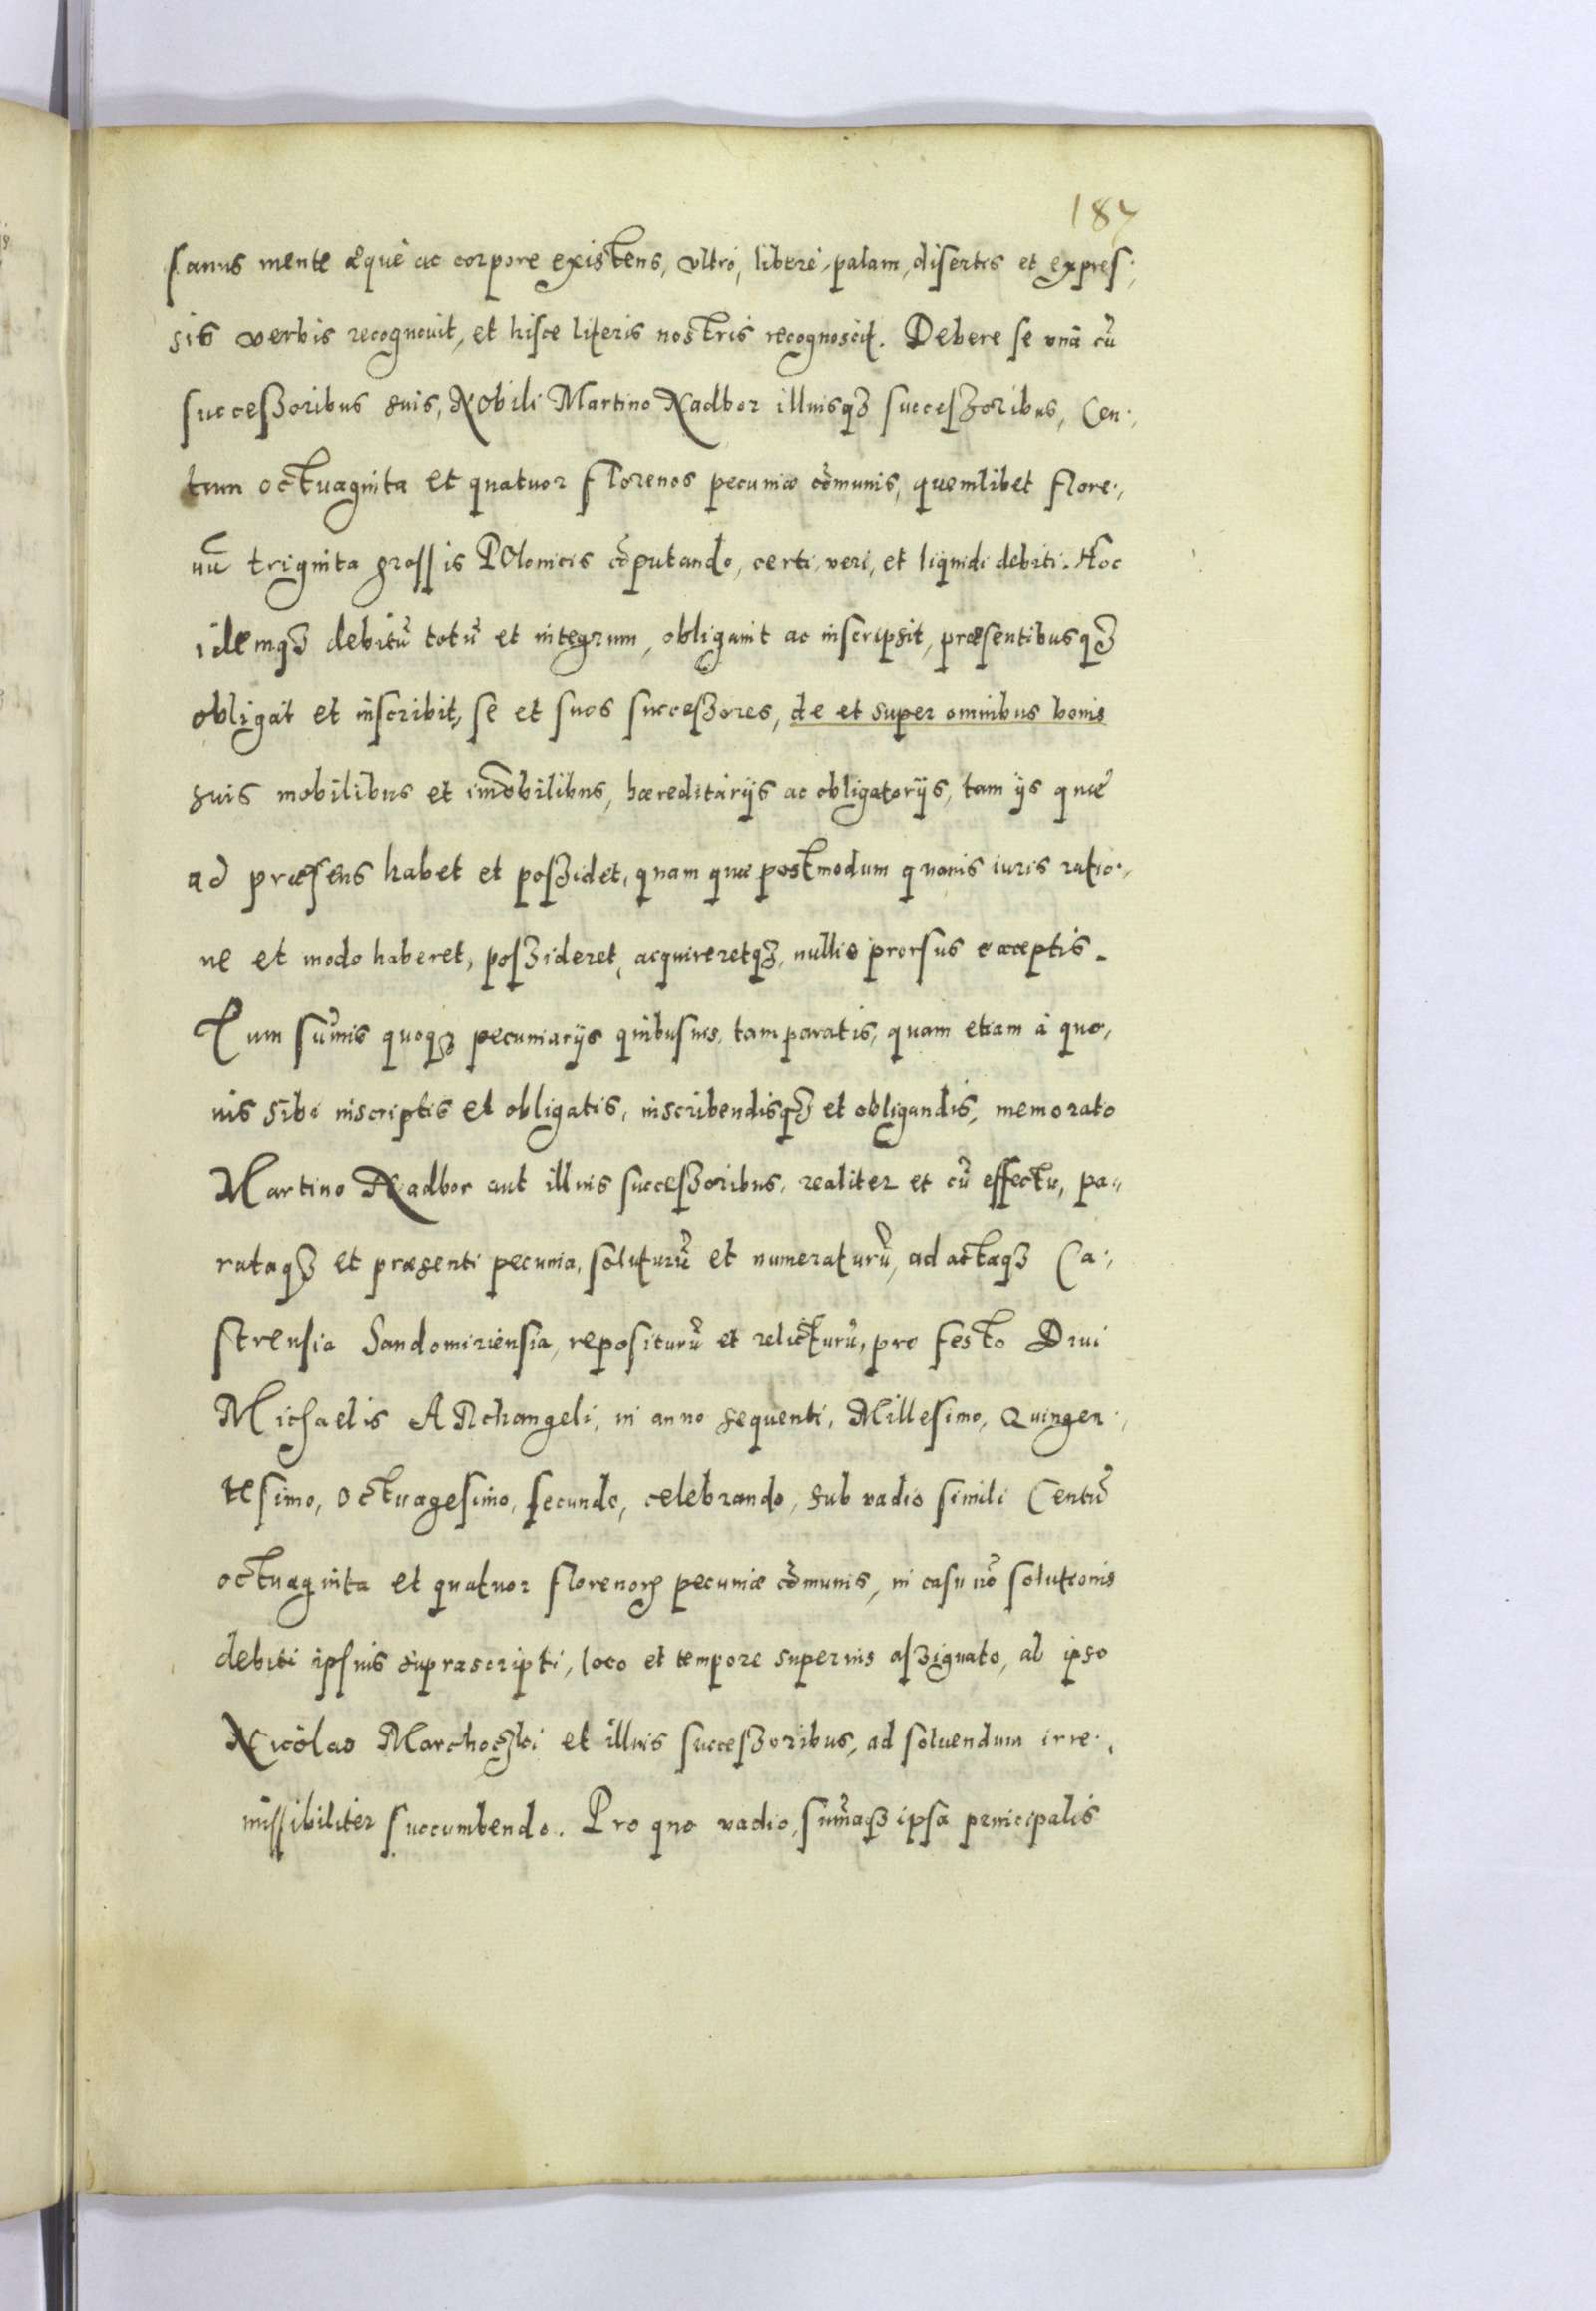 187
sanus mente æquè ac corpore existens, vltrò, liberè, palam, disertis et expres,,
sis verbis recognouit, et hisce literis nostris recognoscit. Debere se vnà cũ
successoribus suis, Nobili Martino Nadbor illiusqȝ successoribus, Cen,,
tum octuaginta et quatuor florenos pecuniæ cõmunis, quemlibet flore,,
nũ triginta grossis Polonicis cõputando, certi, veri, et liquidi debiti. Hoc
idemqȝ debitũ totũ et integrum, obligauit ac inscripsit, præsentibusqȝ
obligat et inscribit, se et suos successores, de et super omnibus bonis
suis mobilibus et im̃obilibus, hæreditarijs ac obligatorijs, tam ijs quæ
ad præsens habet et possidet, quam quæ postmodum quouis iuris ratio,,
ne et modo haberet, possideret, acquireretqȝ, nullis prorsus exceptis.
Tum sũmis quoqȝ pecuniarijs quibusuis, tam paratis, quam etiam à quo,,
uis sibi inscriptis et obligatis, inscribendisqȝ et obligandis, memorato
Martino Nadbor aut illius successoribus, realiter et cũ effectu, pa,,
rataqȝ et præsenti pecunia, soluturũ et numeraturũ, ad actaqȝ Ca,,
strensia Sandomiriensia, repositurũ et relicturũ, pro festo Diui
Michaelis ARchangeli, in anno sequenti, Millesimo, Quingen,,
tesimo, octuagesimo, secundo, celebrando, sub vadio simili Centũ
octuaginta et quatuor florenorꝝ pecuniæ cõmunis, in casu nõ solutionis
debiti ipsius suprascripti, loco et tempore superius assignato, ab ipso
Nicolao Marchoczki et illius successoribus, ad soluendum irre,,
missibiliter succumbendo. Pro quo vadio, sum̃aqȝ ipsa principalis